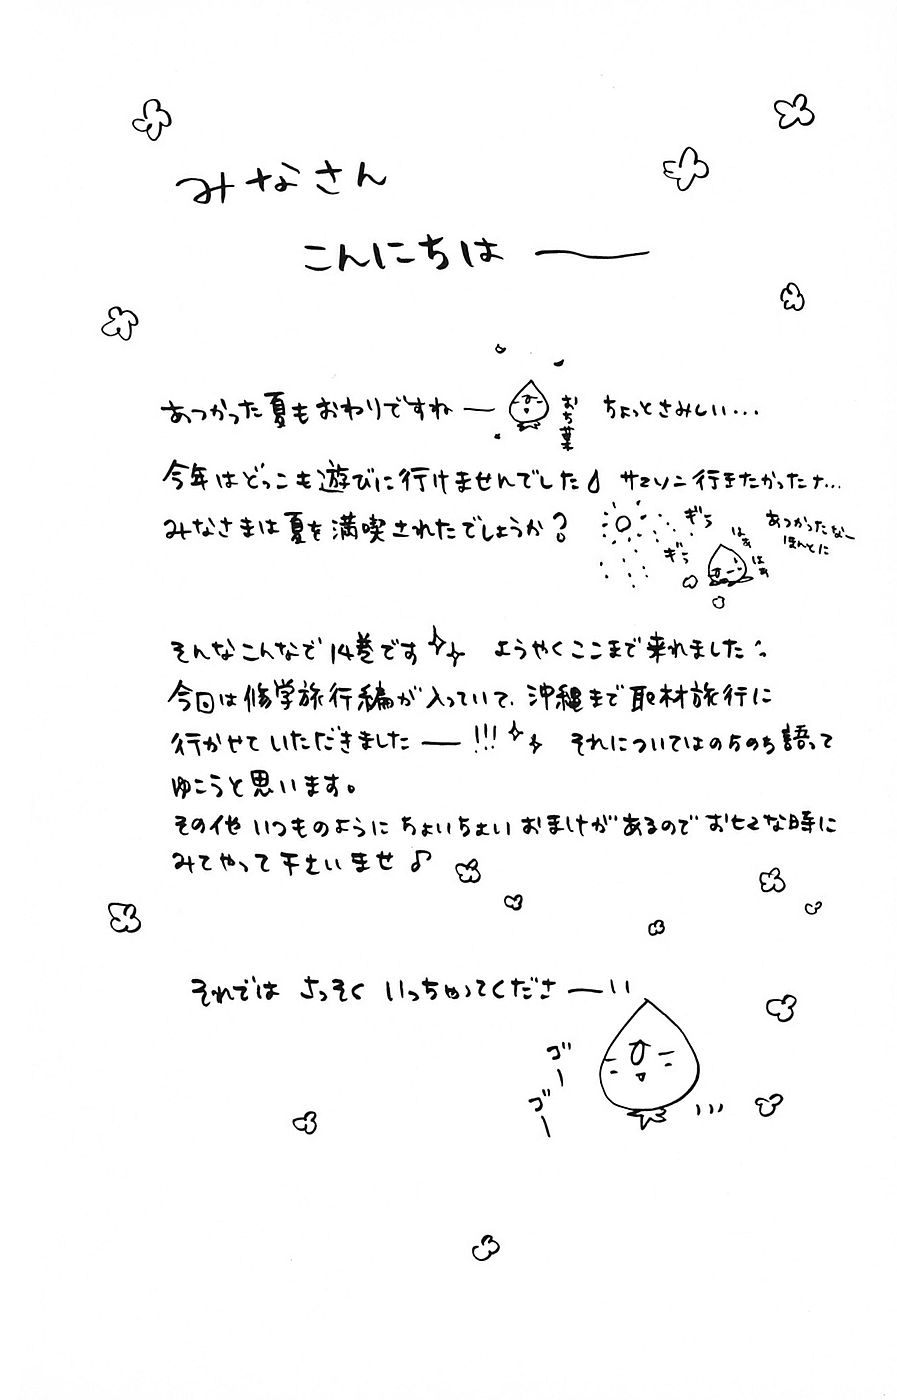 みなさん
こんにちは ——
あつかった夏もおわりですね— ちょっとさみしい...
おち葉
今年はどっこも遊びに行けませんでした サマソニ行きたかったナ...
みなさまは夏を満喫されたでしょうか?
ぎら
ぎら
はぁ
はぁ
あつかったなー
ほんとに
そんなこんなで14巻です ようやくここまで来れました
今回は修学旅行編が入っていて、沖縄まで取材旅行に
行かせていただきました—!!! それについてはのちのち語って
ゆこうと思います。
その他いつものようにちょいちょいおまけがあるのでおヒマな時に
みてやって下さいませ♪
それでは さっそく いっちゃってくださーいい
ゴー
ゴー